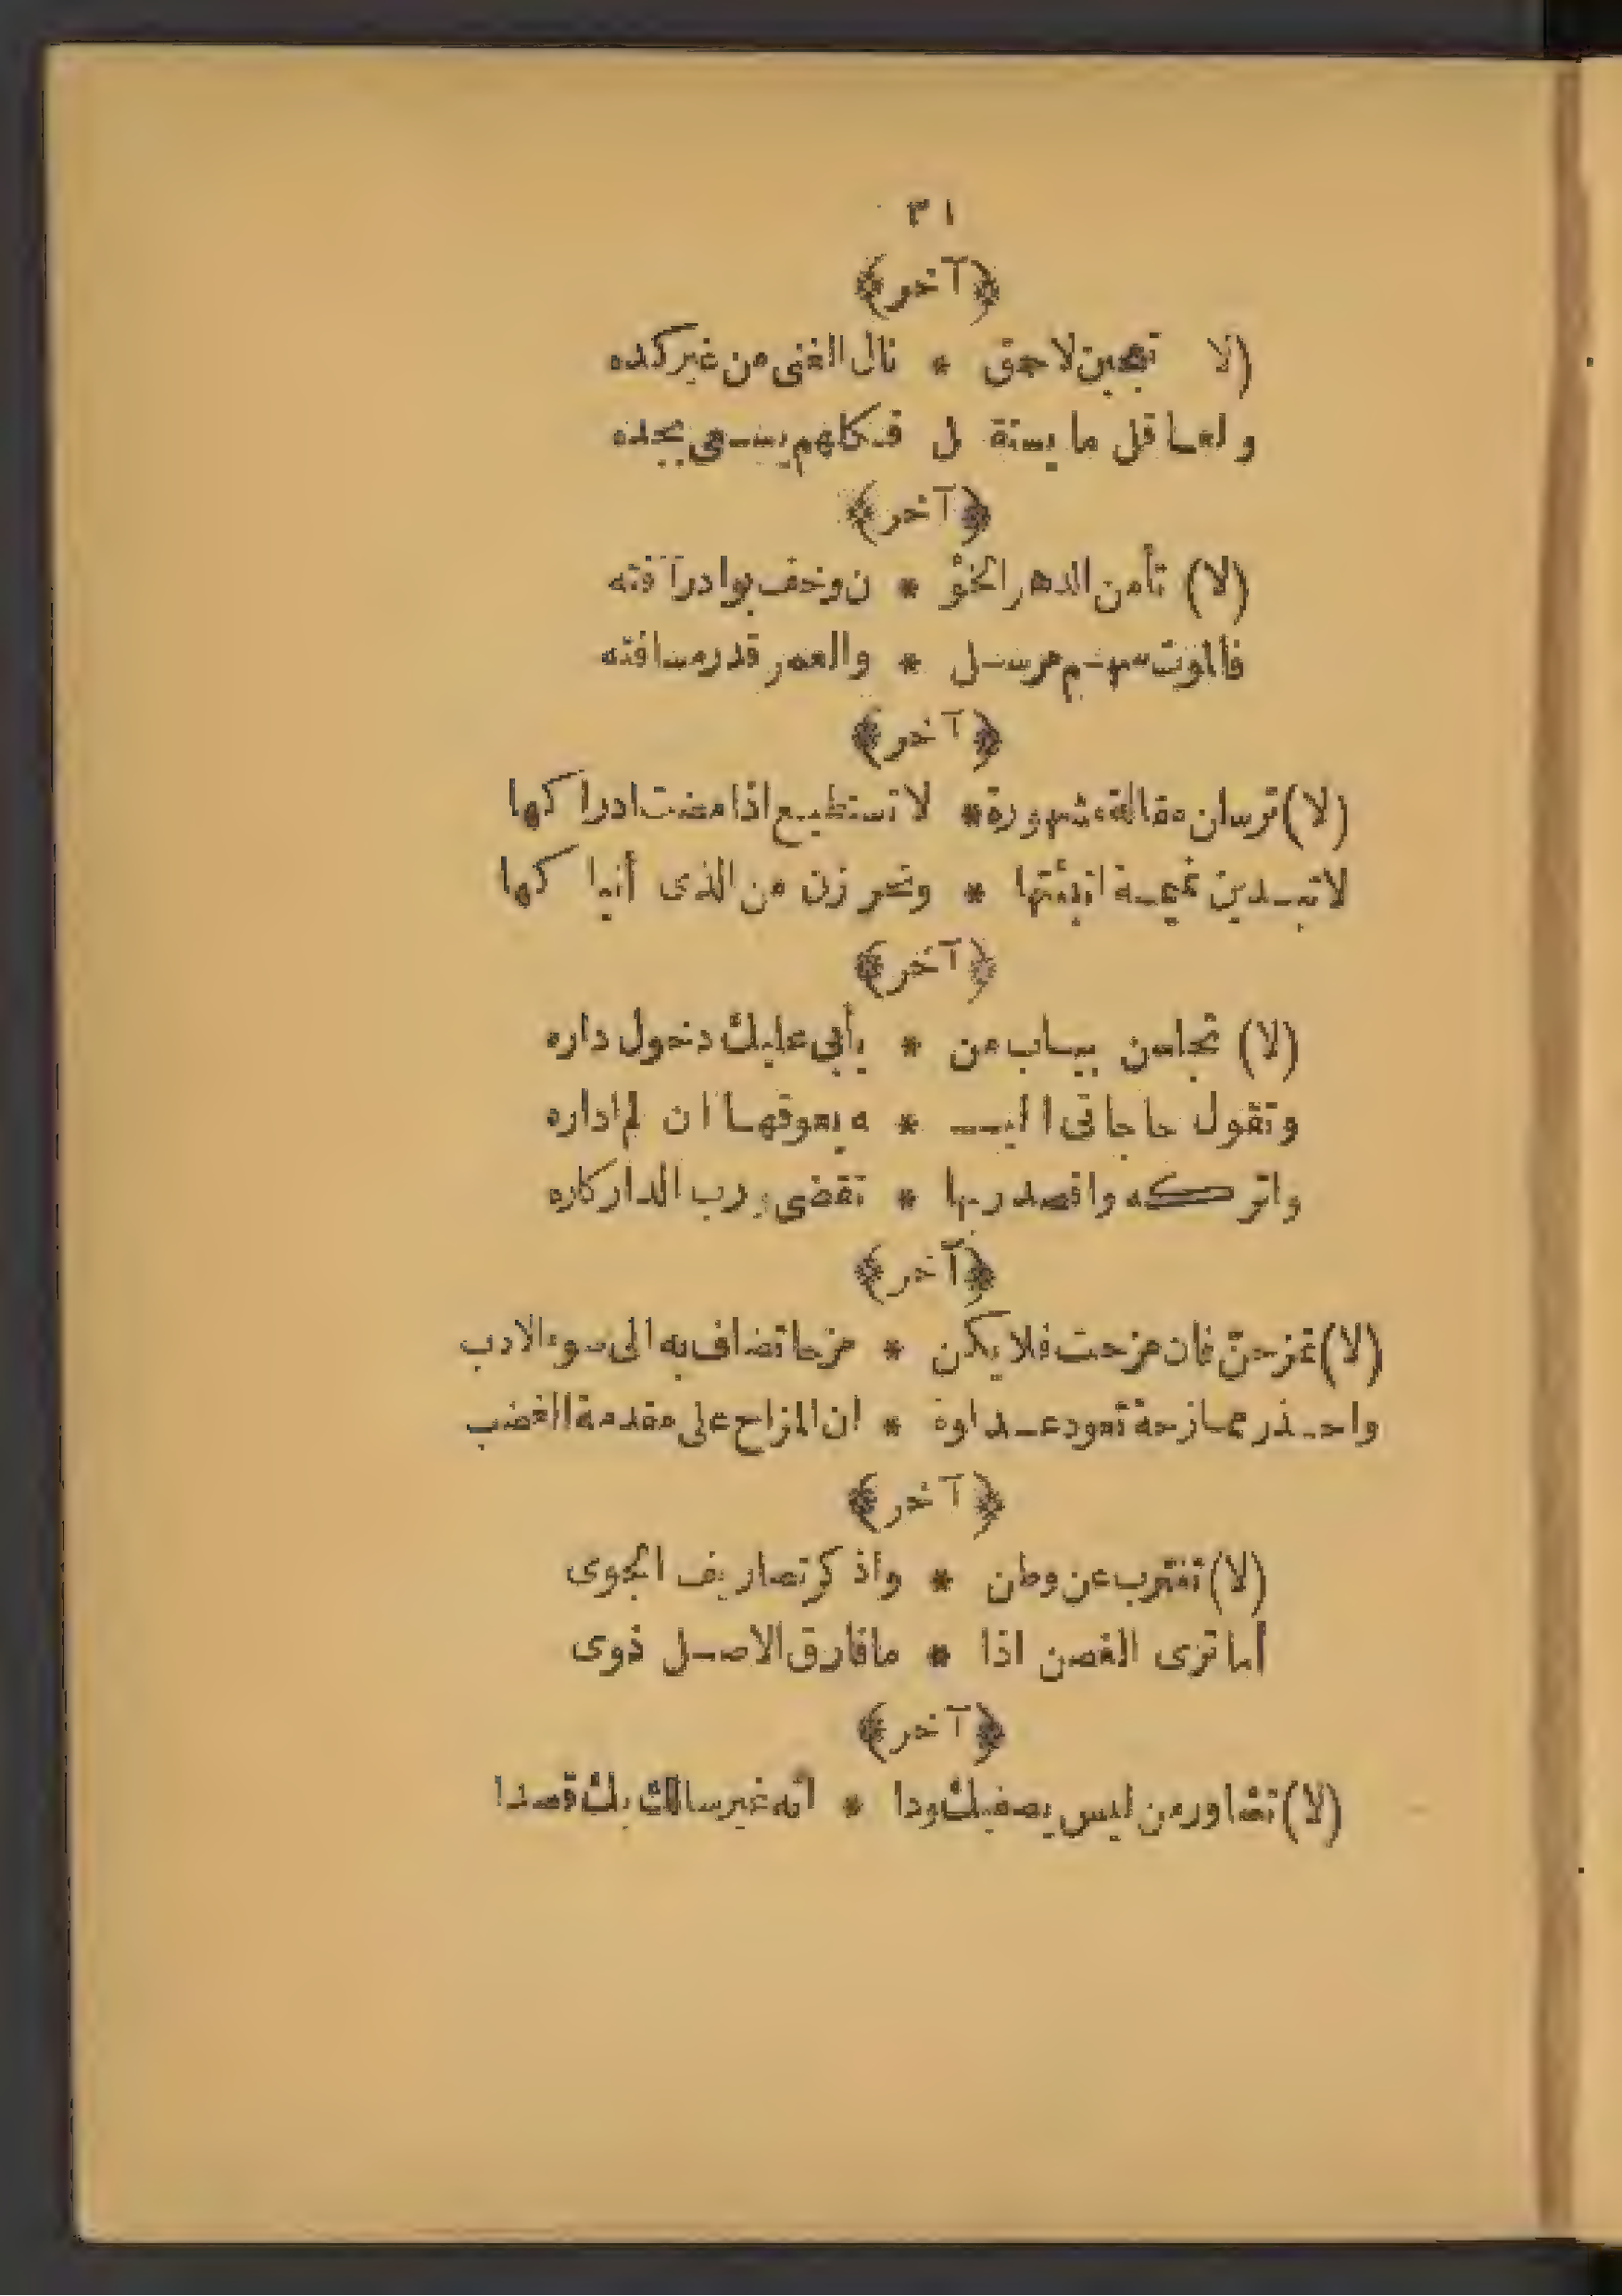 ٣١
﴿آخر﴾
(لا تعجبن لاحمق * نال الغنى من غير كده
ولعاقل ما يستقل فكلهم يسعى بجده
﴿آخر﴾
(لا) تأمن الدهر الخؤ * ن وخف بوادر آفته
فالموت سهم مرسل * والعمر قدر مسافته
﴿آخر﴾
(لا) ترسلن مقالة مشهورة * لا تستطيع اذا مضت ادراكها
لا تبدين نميمة انبئتها * وتحرزن من الذى أنباكها
﴿آخر﴾
(لا) تجلسن بباب من * يأبى عليك دخول داره
وتقول حاجاتى اليـ * ـه يعوقها ان لم اداره
واتركه واقصد ربها * تقضى ورب الدار كاره
﴿آخر﴾
(لا) تمزحنّ فان مزحت فلا يكن * مزحا تضاف به الى سوء الادب
واحذر ممازحة تعود عداوة * ان المزاح على مقدمة الغضب
﴿آخر﴾
(لا) تغترب عن وطن * واذكر تصاريف الجوى
أما ترى الغصن اذا * ما فارق الاصل ذوى
﴿آخر﴾
(لا) تشاور من ليس يصفيك ودا * انه غير سالك بك قصدا